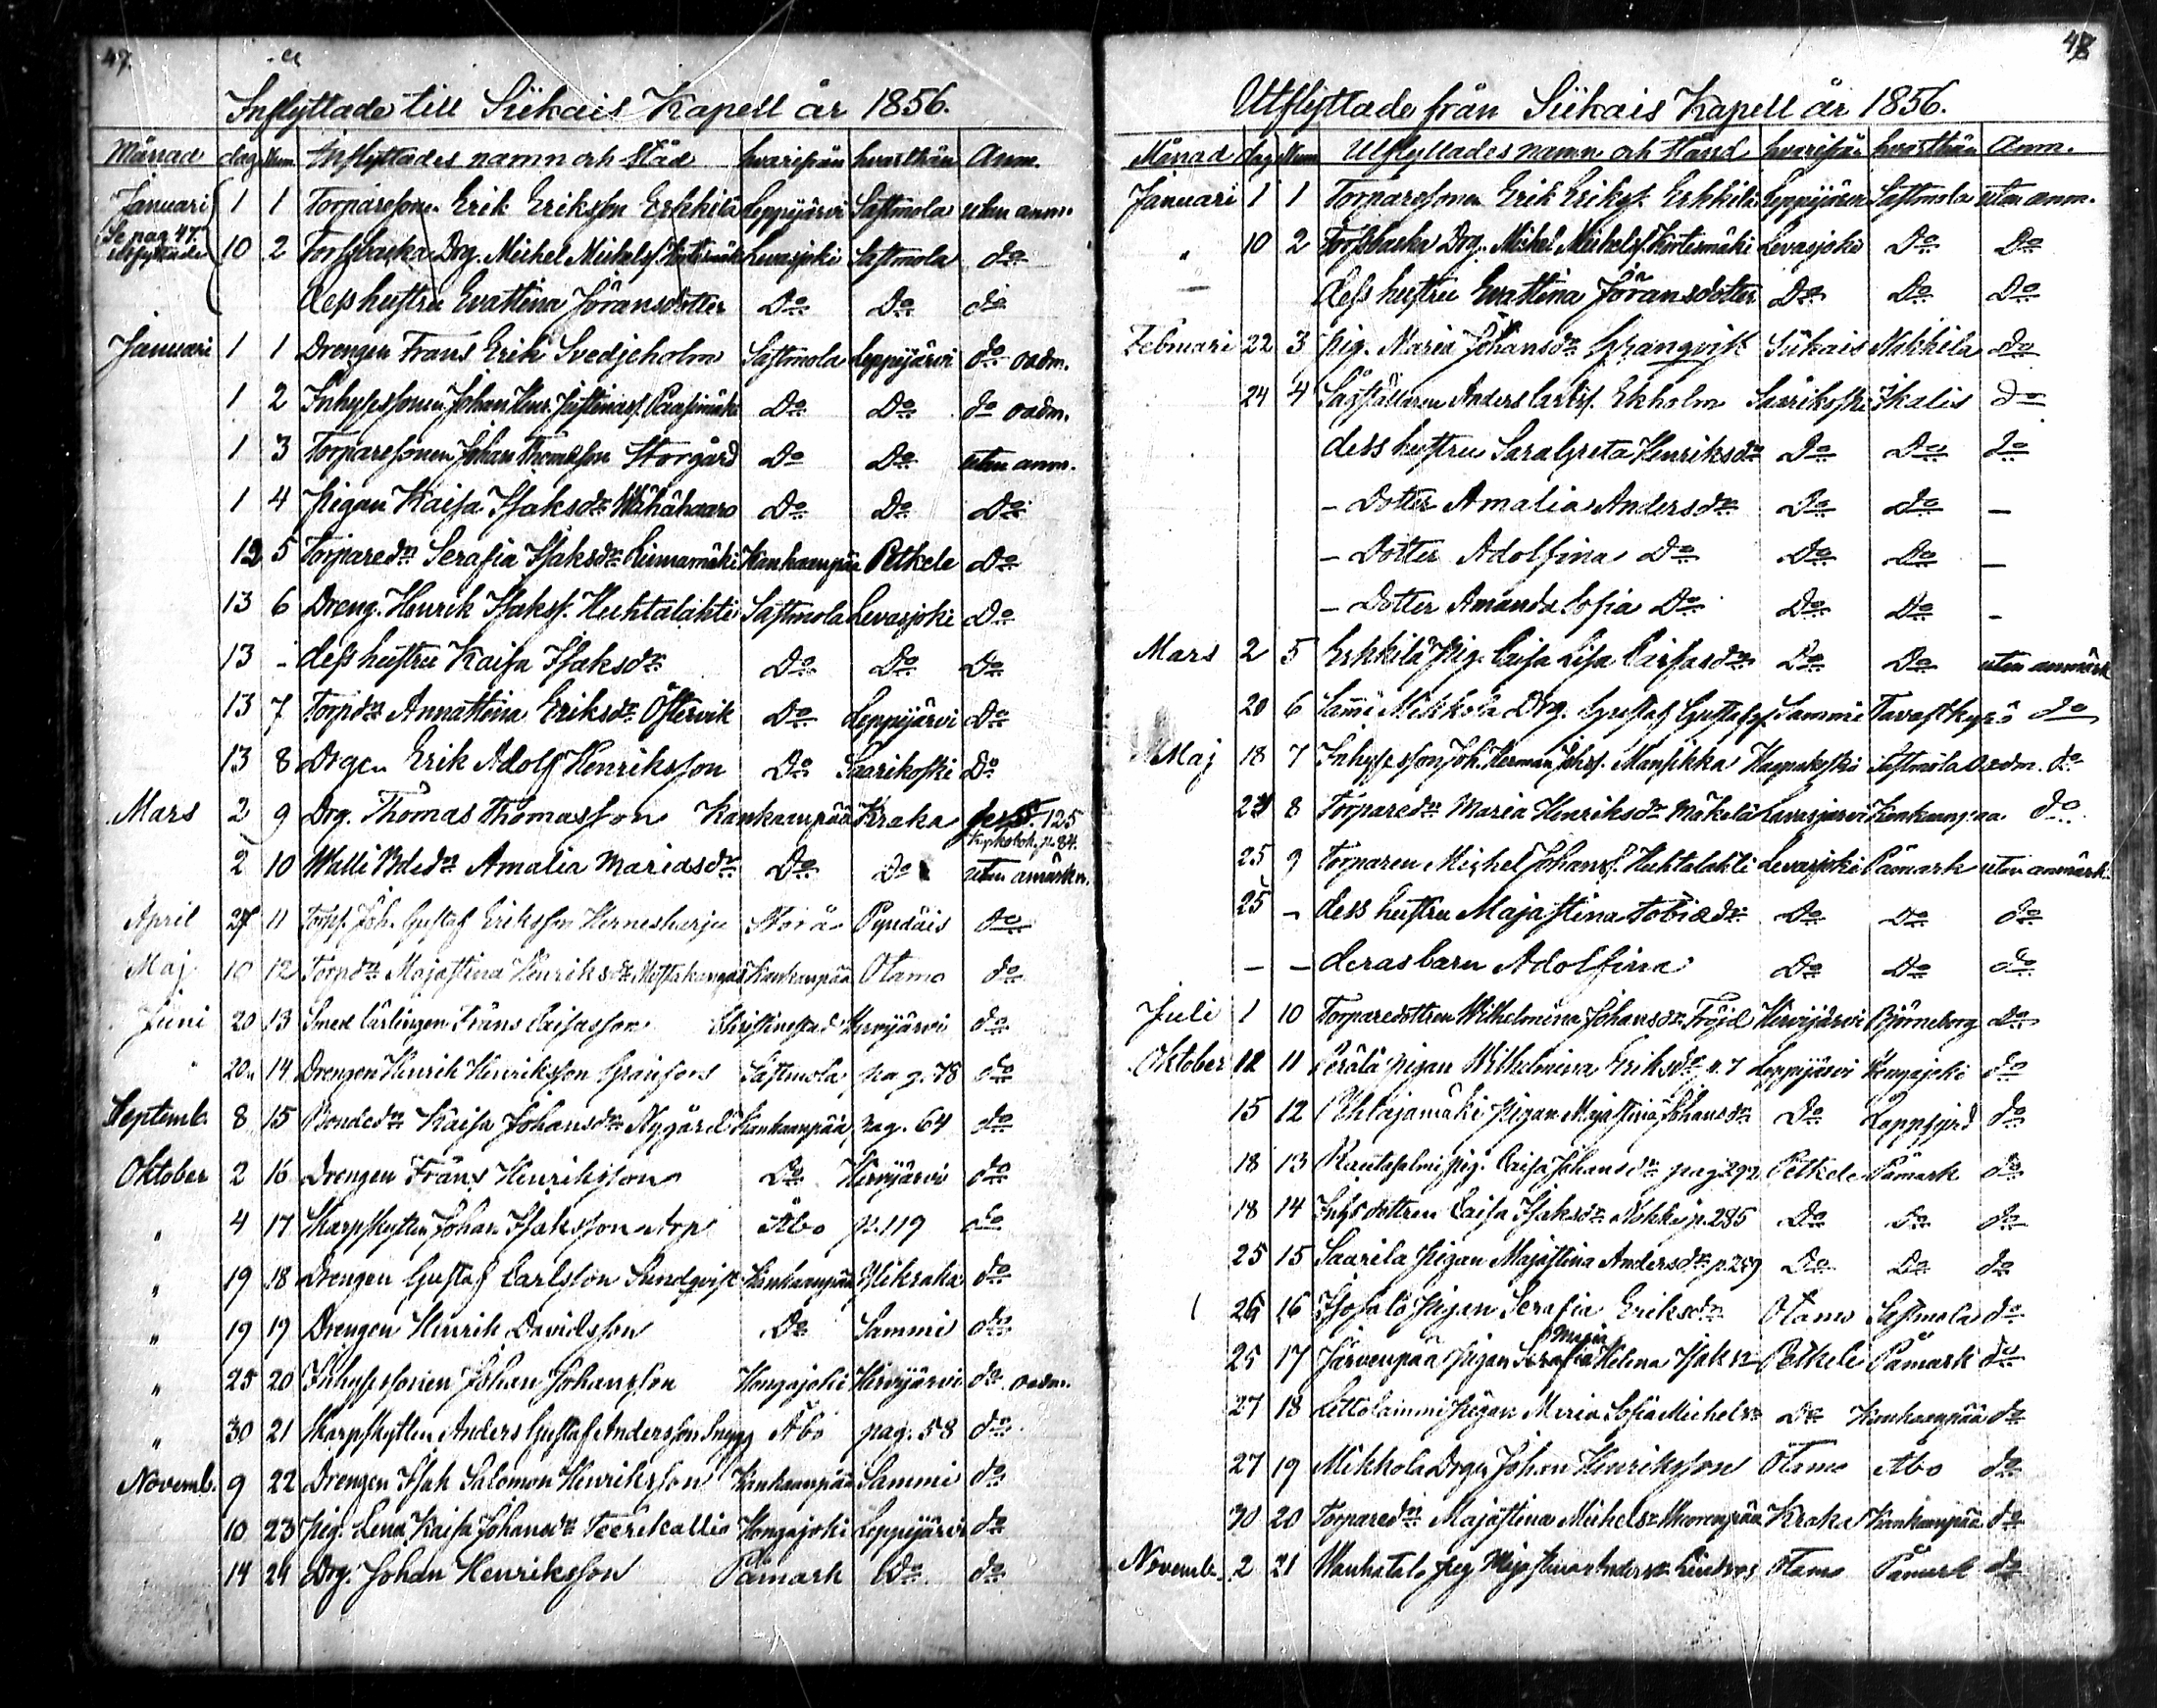 47.
Inflyttade till Siikais Kapell år 1856.
Månad dag Num. Inflyttades namn och Stånd hvarifrån hvarthän Anm.
Januari 1 1 Torparesonen Erik Eriksson Erkkilä Leppijärvi Sastmola utan anm.
Se pag 47. utflyttade 10 2 Torpbacka Drg. Michel Michelss. Leväsjoki Sastmola do
dess hustru Evastina Jöransdotter Do Do do
Januari 1 1 Drengen Frans Erik Svedjeholm Sastmola Leppijärvi do oadm.
1 2 Inhysessonen Johan Do Do do oadm.
1 3 Torparesonen Johan Thomasson Storgård Do Do utan anm.
1 4 Pigan Kaisa Isaksdr Wähähaaro Do Do Do
12 5 Torparedr Serafia Isaksdr Kankaanpää Petkele Do
13 6 Dreng. Henrik Isakss. Huhtalahti Sastmola Levasjoki Do
13 - dess hustru Kaisa Isaksdr Do Do Do
13 7 Torpdr Annastina Eriksdr Östervik Do Leppijärvi Do
13 8 Drgen Erik Adolf Henriksson Do Saarikoski Do
Mars 2 9 Drg. Thomas Thomasson Kankaanpää Kraka 125 p. 84.
2 10 Walli Bdedr Amalia Mariasdr Do Do utan anmärkn.
April 27 11 Torps. Joh. Gustaf Eriksson Herneharju Storå Do
Maj 10 12 Torpdr Majastina Henriksdr Kankaanpää Otamo do
Juni 20 13 Smeds Lärlingen Frans Caisasson Christinestad Hirvijärvi do
" 20 14 Drengen Henrik Henriksson Sastmola pag. 78 do
Septemb. 8 15 Bondedr Kaisa Johansdr Nygård Kankaanpää pag. 64 do
Oktober 2 16 Drengen Frans Henriksson Do Hirvijärvi do
" 4 17 Skarpskytten Johan Isaksson Åbo p. 119 do
" 19 18 Drengen Gustaf Carlsson Sundqvist Kankaanpää do
" 19 19 Drengen Henrik Davidsson Do Sammi do
" 25 20 Inhysessonen Johan Johansson Hongajoki Hirvijärvi do oadm.
" 30 21 Skarpskytten Anders Gustaf Andersson Åbo pag. 58 do
Novemb. 9 22 Drengen Isak Salomon Henriksson Kankaanpää Sammi do
10 23 Pig. Lena Kaisa Johansdr Teerikallio Hongajoki Leppijärvi do
14 24 Drg. Johan Henriksson Påmark Do do
48
Utflyttade från Siikais Kapell år 1856.
Månad dag Num Utflyttades namn och Stånd hvarifrån hvarthän Anm.
Januari 1 1 Torparesonen Erik Erikss. Erkkilä Leppijärvi Sastmola utan anm.
" 10 2 Torpbacka Drg. Michel Michelss. Levasjoki Do Do
dess hustru Evastina Jöransdotter Do Do Do
Februari 22 3 Pig. Maria Johansdr Siikais Nakkila Do
24 4 Anders Carlss. Ekholm Saarikoski Ikalis Do
dess hustru Sara Greta Henriksdr Do Do Do
- Dotter Amalia Andersdr Do Do -
- Dotter Adolfina Do Do Do -
- Dotter Amanda Sofia Do Do Do -
Mars 2 5 Erkkilä Pig. Caisa Lisa Caisasdr Do Do utan anmärk
20 6 Sammi Mikkola Drg. Gustaf Gustafss. Sammi Tavastkyrö do
Maj 18 7 Inhysesson Joh. Herman Johss. Mansikka Sastmola oadm. do
24 8 Torparedr Maria Henriksdr Mäkelä Kankaanpää do
25 9 Torparen Michel Johanss. Huhtalahti Levasjoki Påmark utan anmärk.
25 - dess hustru Majastina Tobiædr Do Do do
- - deras barn Adolfina Do Do do
Juli 1 10 Torparedottren Wilhelmina Johansdr Fröjd Hirvijärvi Björneborg do
Oktober 12 11 Perälä pigan Wilhelmina Eriksdr p. 7 Leppijärvi do
15 12 Pigan Majastina Johansdr Do Lappfjerd do
18 13 Rautasalmi Pig. Caisa Johansdr pag 292 Petkele Påmark do
18 14 Inhysdottren Caisa Isaksdr p. 285 Do Do do
25 15 Saarila Pigan Majastina Andersdr p. 259 Do Do do
26 16 Isotalo Pigan Serafia Eriksdr Otamo Sastmola do
25 17 Järvenpää Pigan Maria Helena Isaksdr Petkele Påmark do
27 18 Pigan Maria Sofia Michelsdr Do Kankaanpää do
27 19 Mikkola Drgn Johan Henriksson Otamo Åbo do
30 20 Torparedr Majastina Michelsdr Kraka Kankaanpää do
Novemb. 2 21 Wanhatalo Pig Majastina Andersdr Lindroos Otamo Påmark do